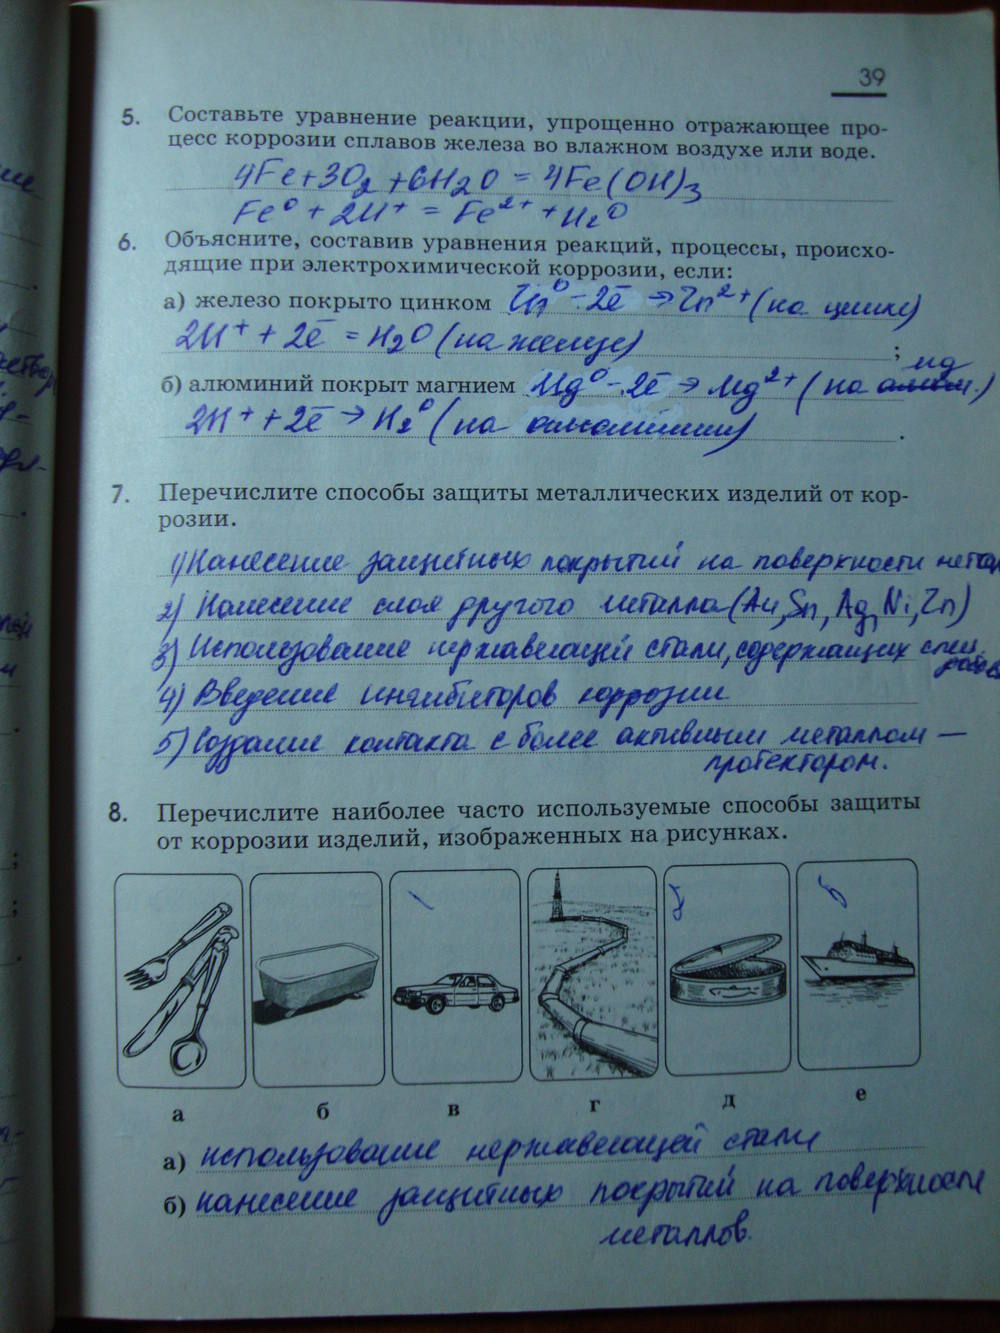 39
5. Составьте уравнение реакции, упрощенно отражающее про-
цесс коррозии сплавов железа во влажном воздухе или воде.
4Fe + 3O2 + 6H2O = 4Fe(OH)3
Fe⁰ + 2H⁺ = Fe²⁺ + H2⁰
6. Объясните, составив уравнения реакций, процессы, происхо-
дящие при электрохимической коррозии, если:
а) железо покрыто цинком Zn⁰ - 2ē → Zn²⁺ (на цинке)
2H⁺ + 2ē = H2O (на железе) ;
mg
б) алюминий покрыт магнием Mg⁰ - 2ē → Mg²⁺ (на алюм.)
2H⁺ + 2ē → H2⁰ (на алюминии) .
7. Перечислите способы защиты металлических изделий от кор-
розии.
1) Нанесение защитных покрытий на поверхности
2) Нанесение слоя другого металла (Au, Sn, Ag, Ni, Zn)
3) Использование нержавеющей стали, содержащих спец.
4) Введение ингибиторов коррозии
5) Создание контакта с более активным металлом —
протектором.
8. Перечислите наиболее часто используемые способы защиты
от коррозии изделий, изображенных на рисунках.
а б в г д е
а) использование нержавеющей стали
б) нанесение защитных покрытий на поверхности
металлов.